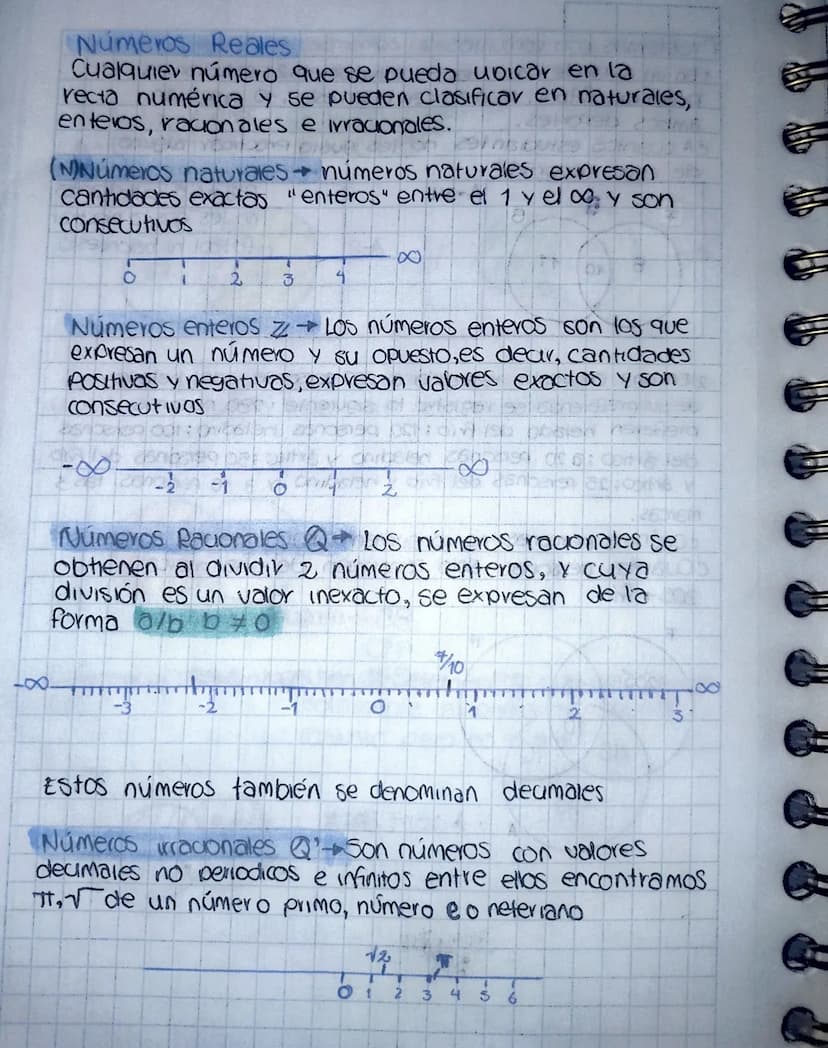 Números Reales
Cualquier número que se pueda ubicar en la
recta numérica y se pueden clasificar en naturales,
enteros, racionales e irracionales.
(N)Números naturales → números naturales expresan
cantidades exactas "enteros" entre el 1 y el ∞, y son
consecutivos
0 1 2 3 4 ∞
Números enteros Z → Los números enteros son los que
expresan un número y su opuesto, es decir, cantidades
positivas y negativas, expresan valores exactos y son
consecutivos
-∞ -2 -1 0 1 2 ∞
Números Racionales Q → Los números racionales se
obtienen al dividir 2 números enteros, y cuya
división es un valor inexacto, se expresan de la
forma a/b b ≠ 0
7/10
-∞ -3 -2 -1 0 1 2 3 ∞
Estos números también se denominan decimales
Números irracionales Q' → Son números con valores
decimales no periodicos e infinitos entre ellos encontramos
π, √ de un número primo, número e o neteriano
√2 π
0 1 2 3 4 5 6